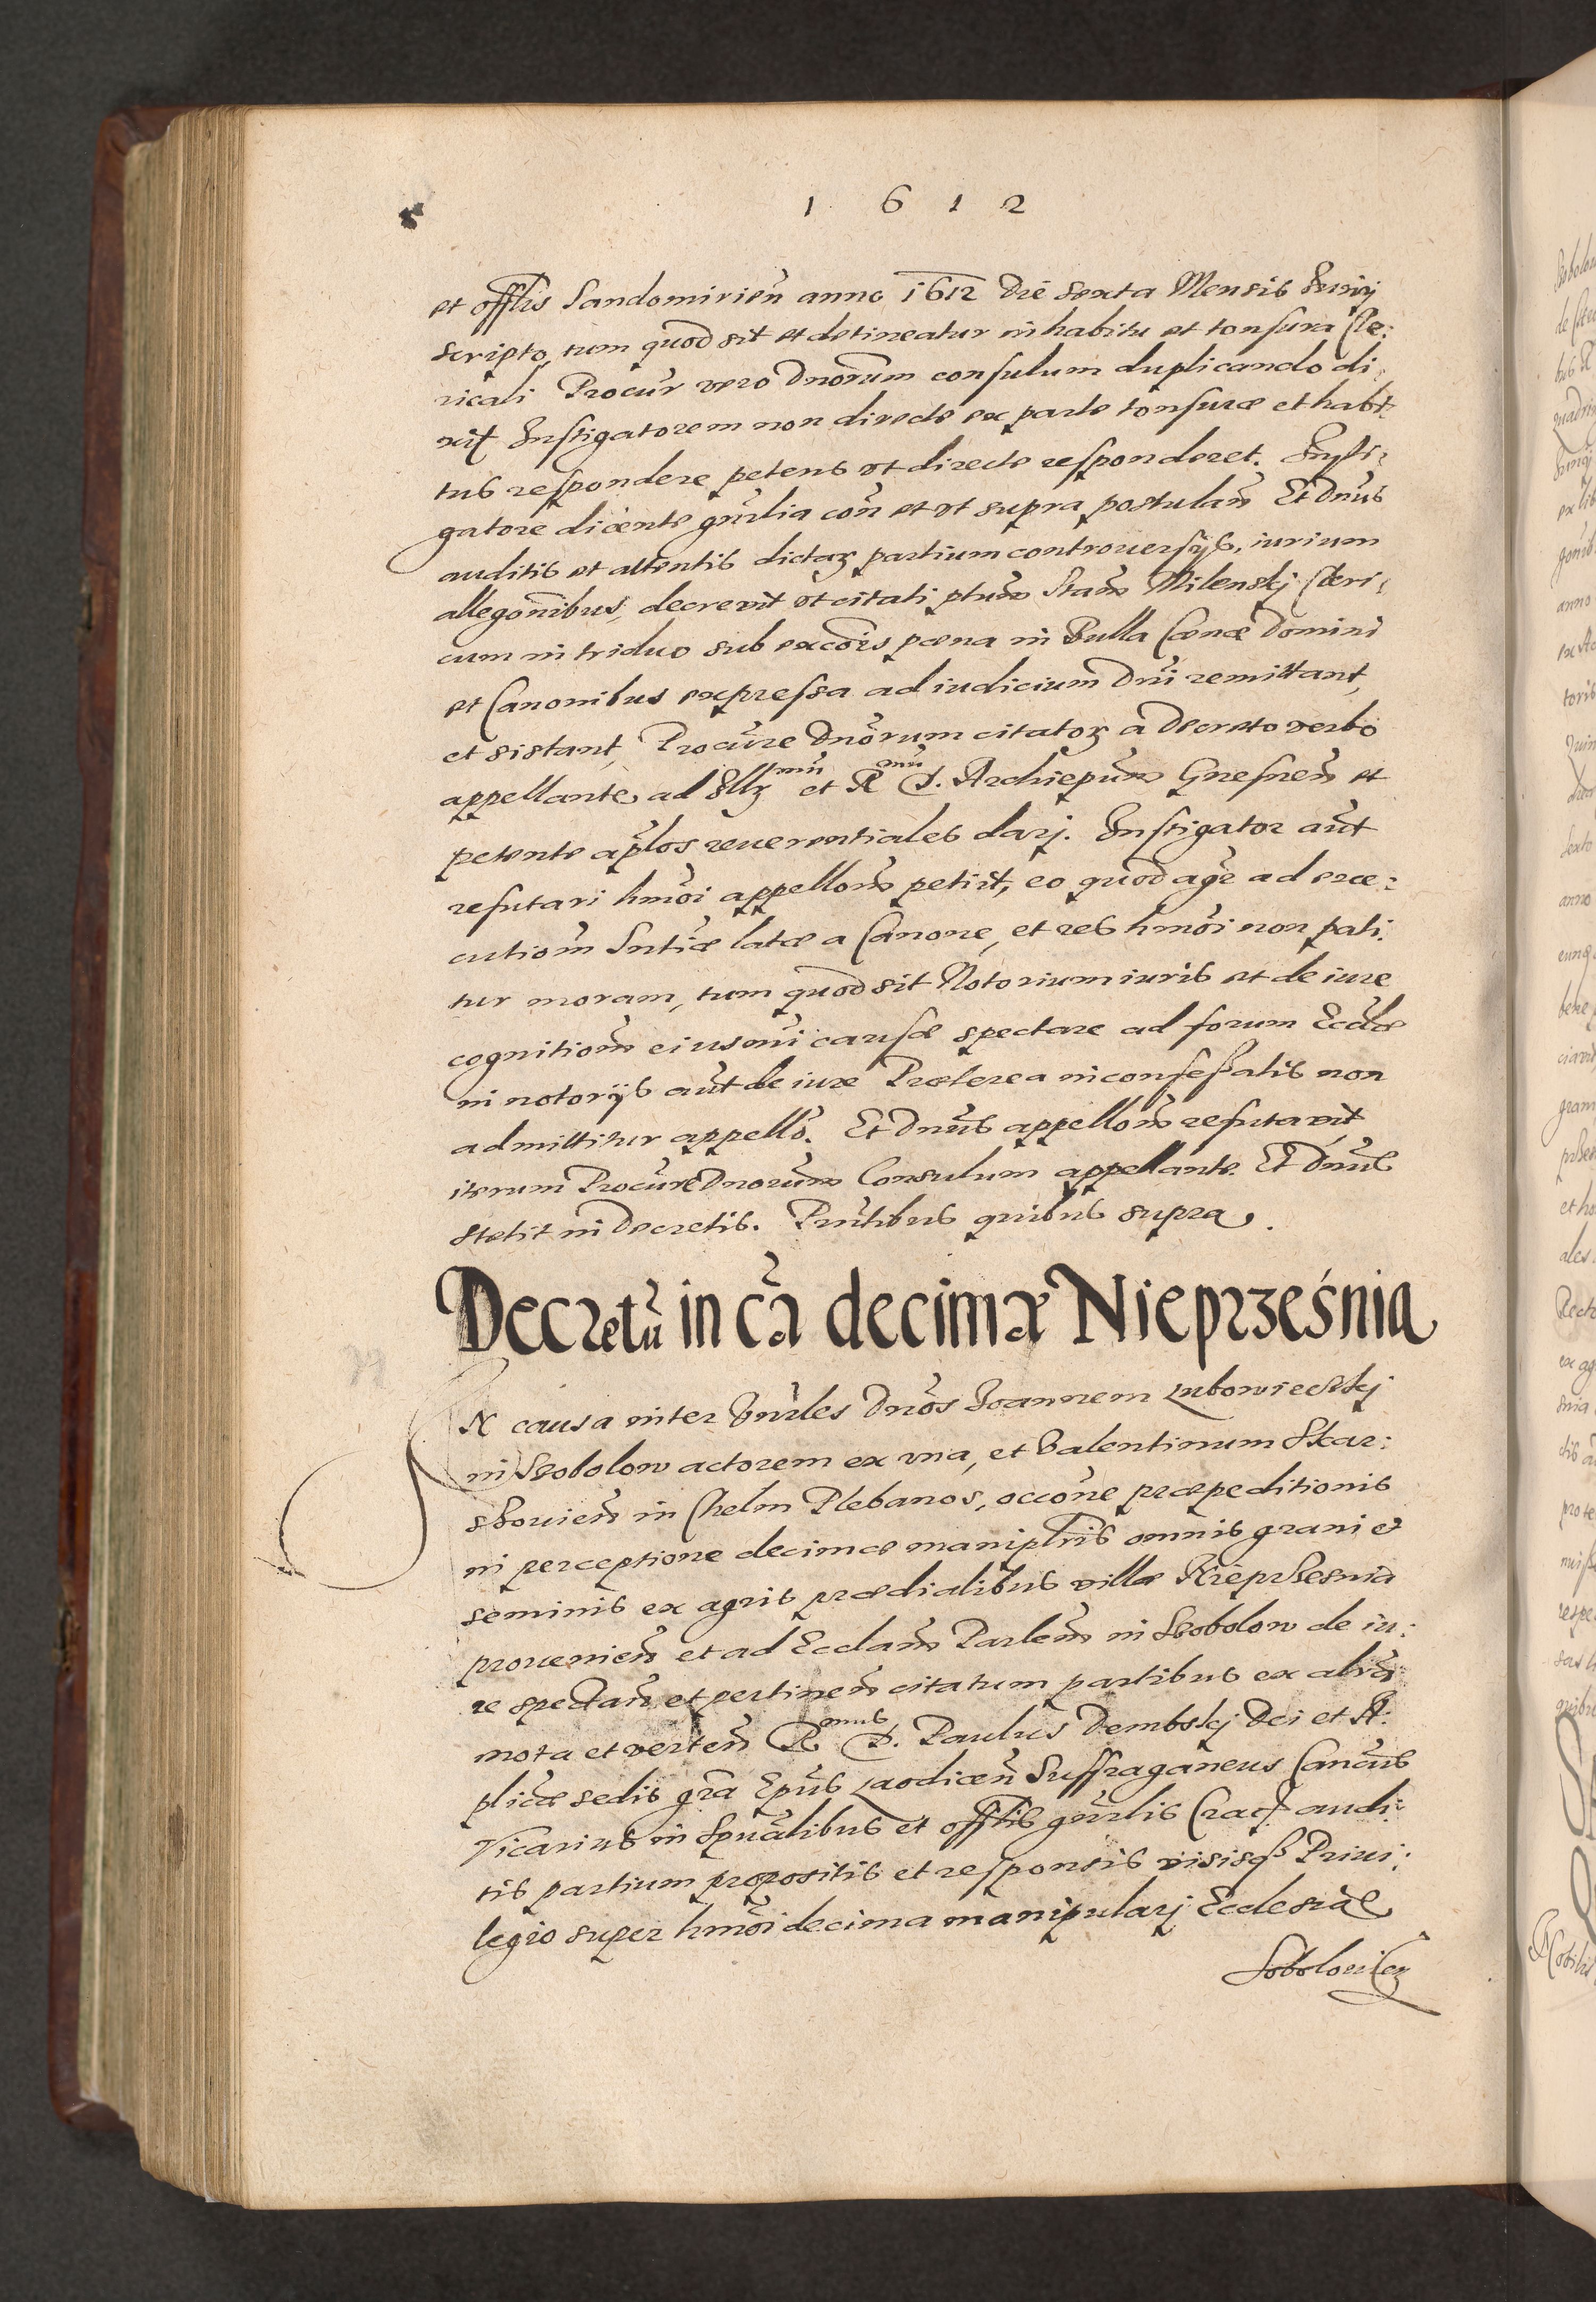 1 6 1 2
et offlis Sandomirień anno 1612 Die sexta Mensis Junij
scripto, tum quod sit et detineatur in habitu et tonsura Cle:
ricali Procur vero Dnorum consulum duplicando di:
xit Instigatorem non directe ex parte tonsuræ et habi:
tus respondere petens vt directe responderet. Insti:
gatore dicente gnrlia coñ et vt supra postulañ Et Dnus
auditis et attentis dictaꝝ partium controuersijs, iurium
allegonibus, decrevit vt citati ptum Stam Milenskj Cleri:
cum in triduo sub excois pœna in Bulla Cœnæ Domini
et Canonibus expressa ad iudicium Dni remittant,
et sistant, Procure Dnorum citatoꝝ a Decreto verbo
appellante ad Illmum et Rmum D. Archiepum Gnesneñ et
petente aplos reuerentiales darj. Instigator aut
refutari hmoi appellonem petijt, eo quod agr ad exe:
cutiom Sntiæ latæ a Canone, et res hmoi non pati:
tur moram, tum quod sit Notorium iuris et de iure
cognitiom eiusmi causæ spectare ad forum Ecclæ
in notorijs aut de iure Præterea in confessatis non
admittitur appello. Et Dnus appellom refutavit
iterum Procure Dnorum Consulum appellante Et Dnus
stetit in Decretis. Pntibus quibus supra.
Decretũ in cã decimæ Nieprześnia
IN causa inter Vnrles Dnos Joannem Lubowieckj
in Sobolow actorem ex vna, et Valentinum Skar:
in Chelm Plebanos, occone præpeditionis
in perceptione decimæ maniplris omnis grani et
seminis ex agris prædialibus villæ Nieprzesnia
proueniẽn et ad Ecclam Parlem in Sobolow de iu:
re spectañ et pertineñ citatum partibus ex altra
mota et verteñ Rmus D. Paulus Dembskj Dei et A:
plicæ sedis gra Epus Laodiceñ Suffraganeus Cancus
Vicarius in Spualibus et offlis gnrlis Crac. audi:
tis partium propositis et responsis visisq Priui:
legio super hmoi decima manipularj Ecclesiæ
Soboloviẽn